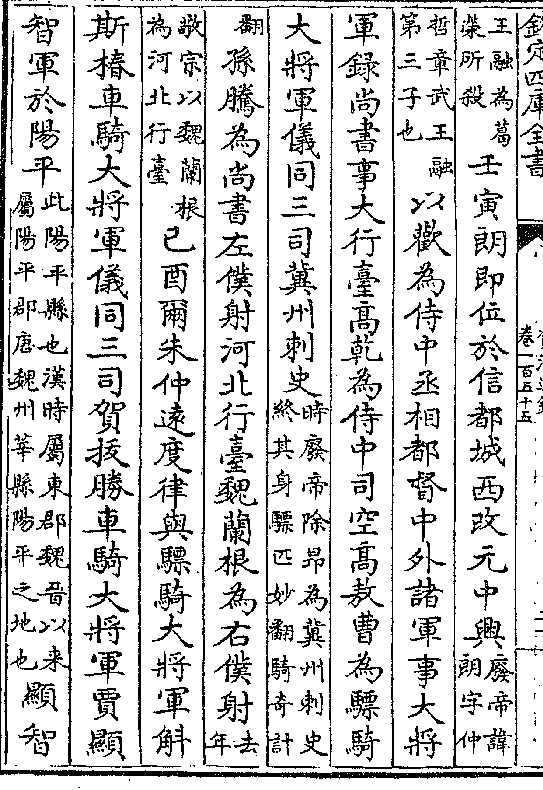 欽定四庫全書
卷一百五十五
王融為葛榮所殺壬寅朗即位於信都城西改元中興廢帝諱朗字仲
哲章武王融第三子也以歡為侍中丞相都督中外諸軍事大將
軍錄尚書事大行臺高乾為侍中司空高敖曹為驃騎
大將軍儀同三司冀州刺史時廢帝除昂為冀州刺史終其身驃匹妙翻騎奇計
翻孫騰為尚書左僕射河北行臺魏蘭根為右僕射去年
敬宗以魏蘭根為河北行臺己酉爾朱仲遠度律與驃騎大將軍斛
斯椿車騎大將軍儀同三司賀拔勝車騎大將軍賈顯
智軍於陽平此陽平縣也漢時屬東郡魏晉以來屬陽平郡唐魏州莘縣陽平之地也顯智